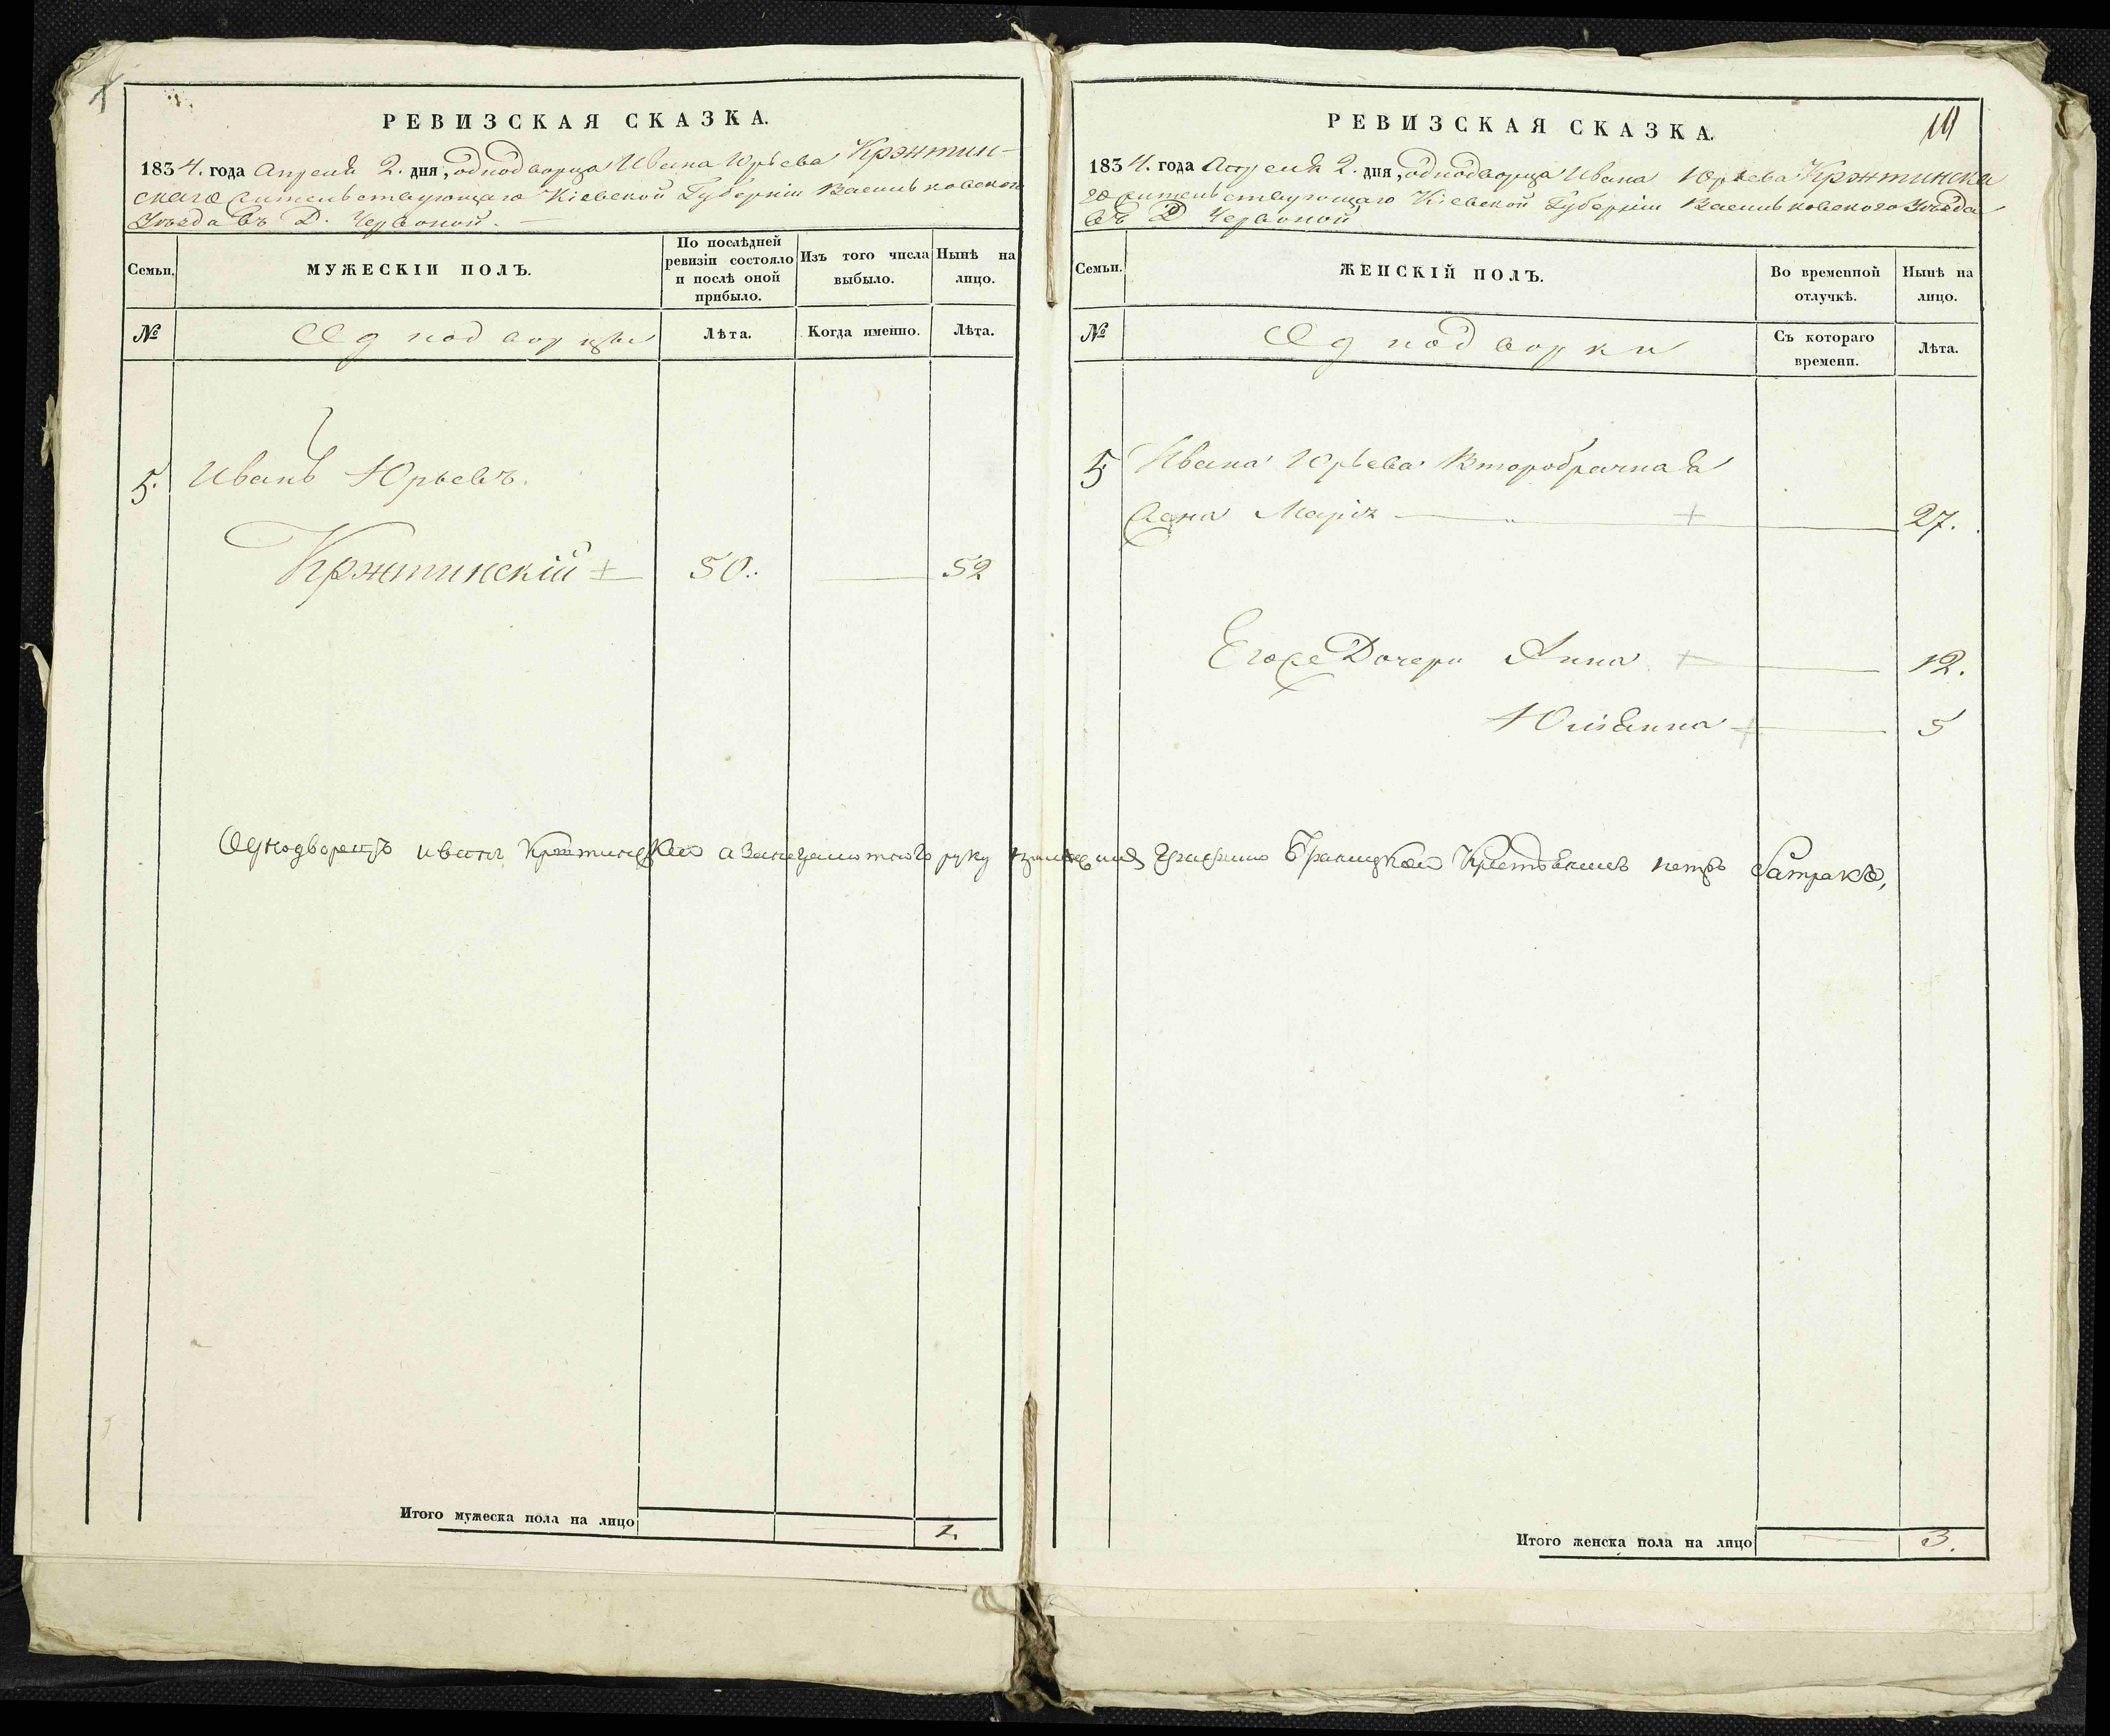 РЕВИЗСКАЯ СКАЗКА.
1834. года Апреля 2. дня, однодворца Ивана Юрьева Кржтин-
скаго жительствующаго Кіевской Губерніи Васильковского
Уѣзда въ Д. Червоной.
Семьи.
МУЖЕСКІЙ ПОЛЪ.
По послѣдней ревизіи состояло и послѣ оной прибыло.
Изъ того числа выбыло.
Нынѣ на лицо.
№
Однодворцы
Лѣта.
Когда именно.
Лѣта.
5. Иванъ Юрьевъ.
Кржтинскій + 50. — 52
Однодворецъ иванъ Кржтинский а за негра руку
Итого мужеска пола на лицо 1.
РЕВИЗСКАЯ СКАЗКА.
1834. года Апреля 2. дня, однодворца Ивана Юрьева Кржтинска
го жительствующаго Кіевской Губерніи Васильковского Уѣзда
въ Д Червоной
Семьи.
ЖЕНСКІЙ ПОЛЪ.
Во временной отлучкѣ.
Нынѣ на лицо.
№
Однодворки
Съ котораго времени.
Лѣта.
5 Ивана Юрьева Второбрачная
жена Марія — + — 27.
Егоже Дочери Анна + — 12.
Юліянна + — 5
Браницкой петръ
Итого женска пола на лицо — 3.